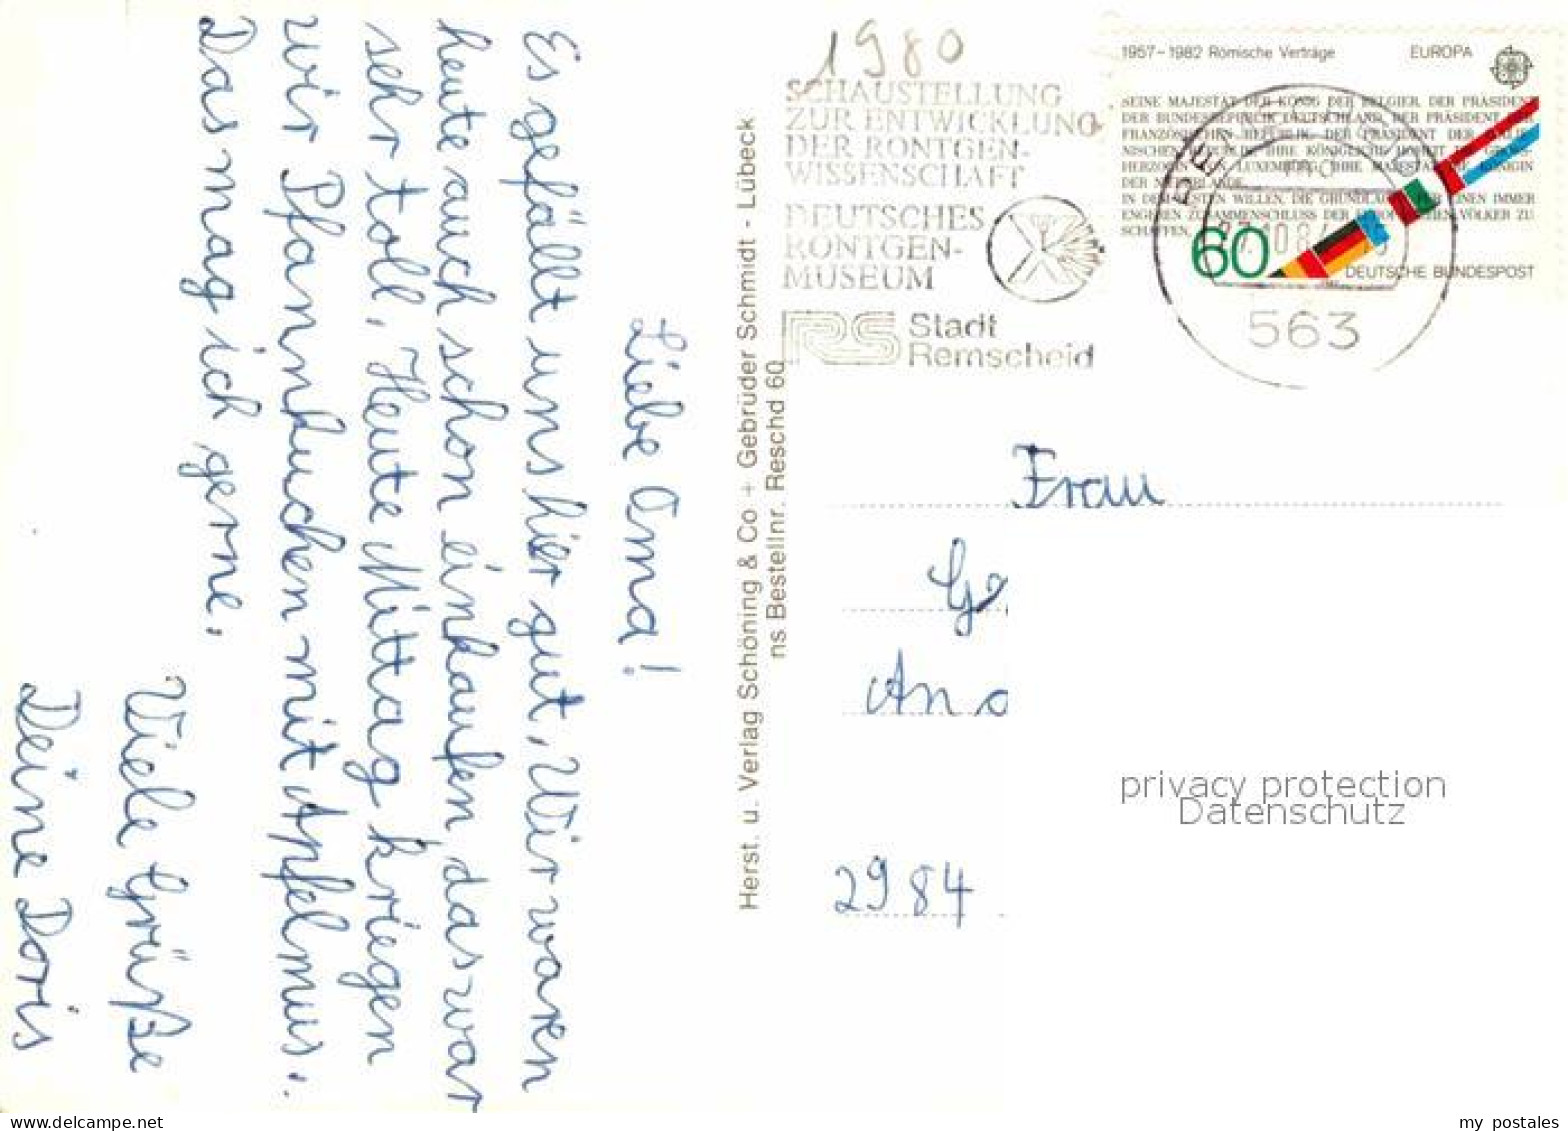 Liebe Oma!
Es gefällt uns hier gut, Wir waren
heute auch schon einkaufen, das war
sehr toll, Heute Mittag kriegen
wir Pfannkuchen mit Apfelmus.
Das mag ich gerne.
Viele Grüße
Deine Doris
Herst. u. Verlag Schöning & Co + Gebrüder Schmidt - Lübeck
ns Bestellnr. Reschd 60
1980
SCHAUSTELLUNG
ZUR ENTWICKLUNG
DER RÖNTGEN-
WISSENSCHAFT
DEUTSCHES
RÖNTGEN-
MUSEUM
RS Stadt
Remscheid
1957-1982 Römische Verträge EUROPA
SEINE MAJESTÄT DER KÖNIG DER BELGIER, DER PRÄSIDENT
DER BUNDESREPUBLIK DEUTSCHLAND, DER PRÄSIDENT DER
FRANZÖSISCHEN REPUBLIK, DER PRÄSIDENT DER
NISCHEN REPUBLIK, IHRE KÖNIGLICHE HOHEIT
HERZOGIN LUXEMBURG, IHRE MAJESTÄT KÖNIGIN
DER NIEDERLANDE,
IN DEM FESTEN WILLEN, DIE GRUNDLAGEN EINEN IMMER
ENGEREN ZUSAMMENSCHLUSS DER EUROPÄISCHEN VÖLKER ZU
SCHAFFEN,
60
DEUTSCHE BUNDESPOST
563
Frau
Ge
An
2984
privacy protection
Datenschutz
my postales